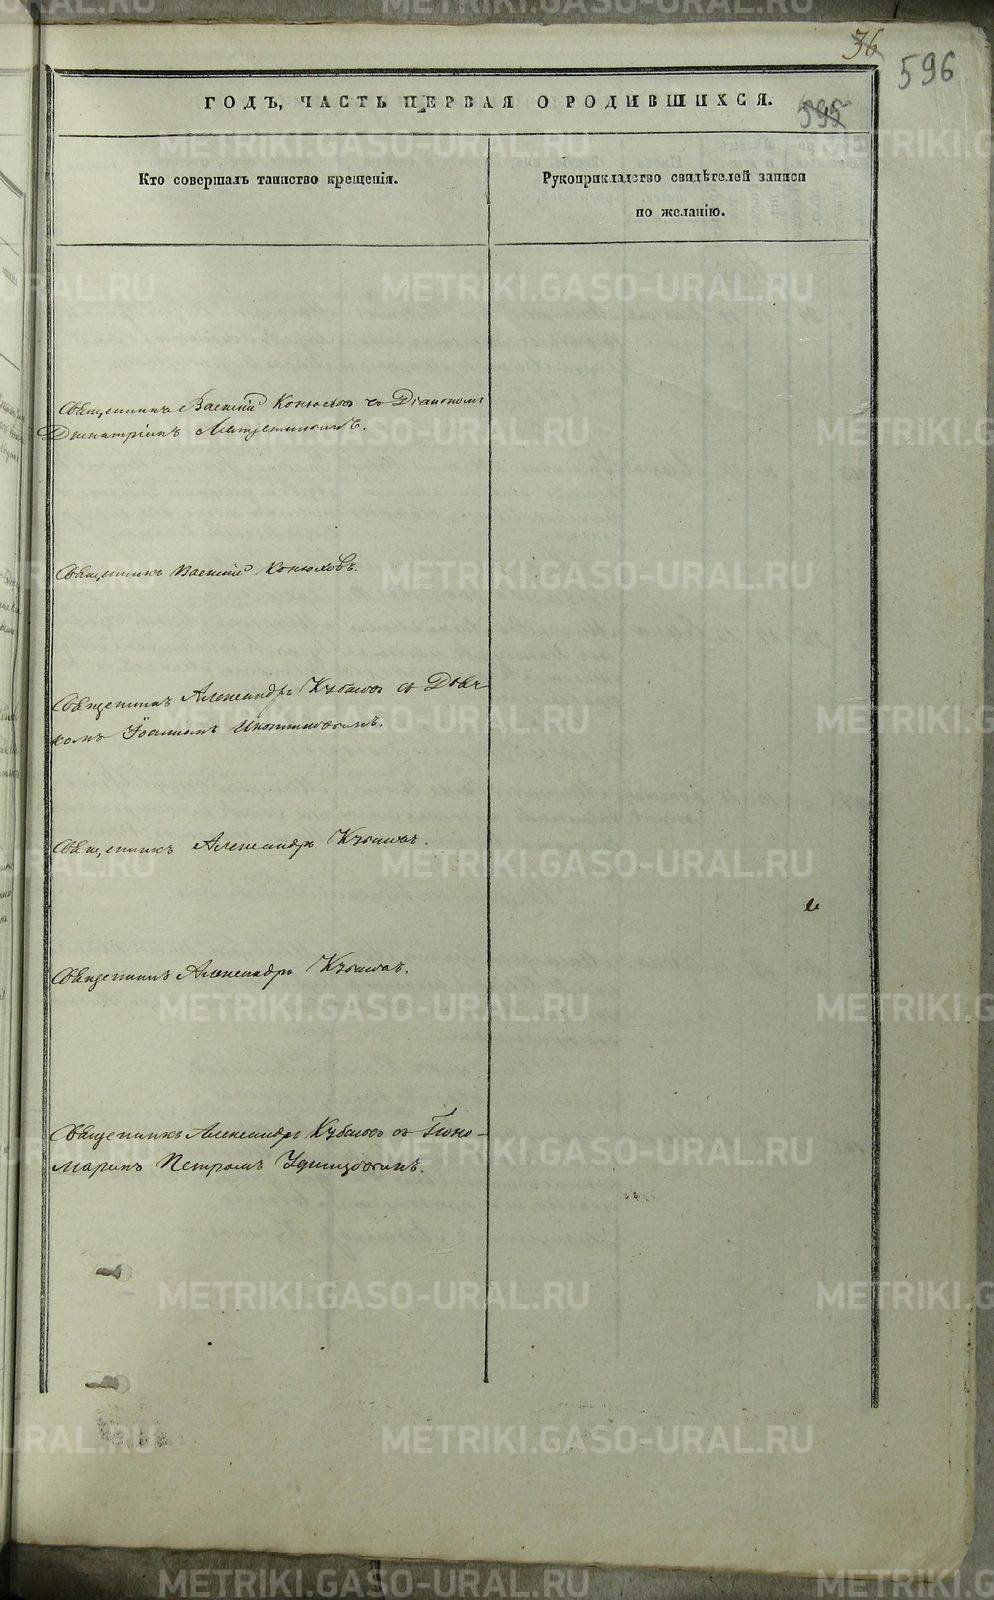 36
596
595
ГОДЪ, ЧАСТЬ ПЕРВАЯ О РОДИВШИХСЯ.
Кто совершалъ таинство крещенія.
Рукоприкладство свидѣтелей записи
по желанію.
Священникъ Василій Конюховъ съ Діакономъ
Димитріемъ
Священникъ Василій Конюховъ.
Священникъ Александръ Кубасовъ съ Дьяч-
комъ Іоанномъ
Священникъ Александръ Кубасовъ.
Священникъ Александръ Кубасовъ.
Священникъ Александръ Кубасовъ съ Поно-
маремъ Петромъ Удинцовымъ.
METRIKI.GASO-URAL.RU